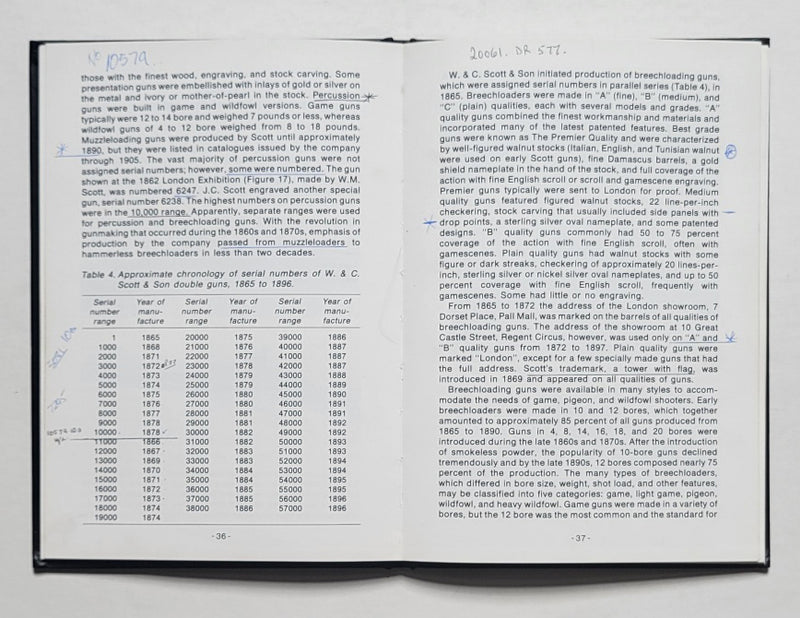 No 10579.
those with the finest wood, engraving, and stock carving. Some
presentation guns were embellished with inlays of gold or silver on
the metal and ivory or mother-of-pearl in the stock. Percussion
guns were built in game and wildfowl versions. Game guns
typically were 12 to 14 bore and weighed 7 pounds or less, whereas
wildfowl guns of 4 to 12 bore weighed from 8 to 18 pounds.
Muzzleloading guns were produced by Scott until approximately
1890, but they were listed in catalogues issued by the company
through 1905. The vast majority of percussion guns were not
assigned serial numbers; however, some were numbered. The gun
shown at the 1862 London Exhibition (Figure 17), made by W.M.
Scott, was numbered 6247. J.C. Scott engraved another special
gun, serial number 6238. The highest numbers on percussion guns
were in the 10,000 range. Apparently, separate ranges were used
for percussion and breechloading guns. With the revolution in
gunmaking that occurred during the 1860s and 1870s, emphasis of
production by the company passed from muzzleloaders to
hammerless breechloaders in less than two decades.
Table 4. Approximate chronology of serial numbers of W. & C.
Scott & Son double guns, 1865 to 1896.
Serial Year of Serial Year of Serial Year of
number manu- number manu- number manu-
range facture range facture range facture
1 1865 20000 1875 39000 1886
1000 1868 21000 1876 40000 1887
2000 1871 22000 1877 41000 1887
3000 1872 23000 1878 42000 1887
4000 1873 24000 1879 43000 1888
5000 1874 25000 1879 44000 1889
6000 1875 26000 1880 45000 1890
7000 1876 27000 1880 46000 1890
8000 1877 28000 1881 47000 1891
9000 1878 29000 1881 48000 1892
10000 1878 30000 1882 49000 1892
11000 1866 31000 1882 50000 1893
12000 1867 32000 1883 51000 1893
13000 1869 33000 1883 52000 1894
14000 1870 34000 1884 53000 1894
15000 1871 35000 1884 54000 1895
16000 1872 36000 1885 55000 1895
17000 1873 37000 1885 56000 1896
18000 1874 38000 1886 57000 1896
19000 1874
-36-
20061. DR 577.
W. & C. Scott & Son initiated production of breechloading guns,
which were assigned serial numbers in parallel series (Table 4), in
1865. Breechloaders were made in "A" (fine), "B" (medium), and
"C" (plain) qualities, each with several models and grades. "A"
quality guns combined the finest workmanship and materials and
incorporated many of the latest patented features. Best grade
guns were known as The Premier Quality and were characterized
by well-figured walnut stocks (Italian, English, and Tunisian walnut
were used on early Scott guns), fine Damascus barrels, a gold
shield nameplate in the hand of the stock, and full coverage of the
action with fine English scroll or scroll and gamescene engraving.
Premier guns typically were sent to London for proof. Medium
quality guns featured figured walnut stocks, 22 line-per-inch
checkering, stock carving that usually included side panels with
drop points, a sterling silver oval nameplate, and some patented
designs. "B" quality guns commonly had 50 to 75 percent
coverage of the action with fine English scroll, often with
gamescenes. Plain quality guns had walnut stocks with some
figure or dark streaks, checkering of approximately 20 lines-per-
inch, sterling silver or nickel silver oval nameplates, and up to 50
percent coverage with fine English scroll, frequently with
gamescenes. Some had little or no engraving.
From 1865 to 1872 the address of the London showroom, 7
Dorset Place, Pall Mall, was marked on the barrels of all qualities of
breechloading guns. The address of the showroom at 10 Great
Castle Street, Regent Circus, however, was used only on "A" and
"B" quality guns from 1872 to 1897. Plain quality guns were
marked "London", except for a few specially made guns that had
the full address. Scott's trademark, a tower with flag, was
introduced in 1869 and appeared on all qualities of guns.
Breechloading guns were available in many styles to accom-
modate the needs of game, pigeon, and wildfowl shooters. Early
breechloaders were made in 10 and 12 bores, which together
amounted to approximately 85 percent of all guns produced from
1865 to 1890. Guns in 4, 8, 14, 16, 18, and 20 bores were
introduced during the late 1860s and 1870s. After the introduction
of smokeless powder, the popularity of 10-bore guns declined
tremendously and by the late 1890s, 12 bores composed nearly 75
percent of the production. The many types of breechloaders,
which differed in bore size, weight, shot load, and other features,
may be classified into five categories: game, light game, pigeon,
wildfowl, and heavy wildfowl. Game guns were made in a variety of
bores, but the 12 bore was the most common and the standard for
-37-